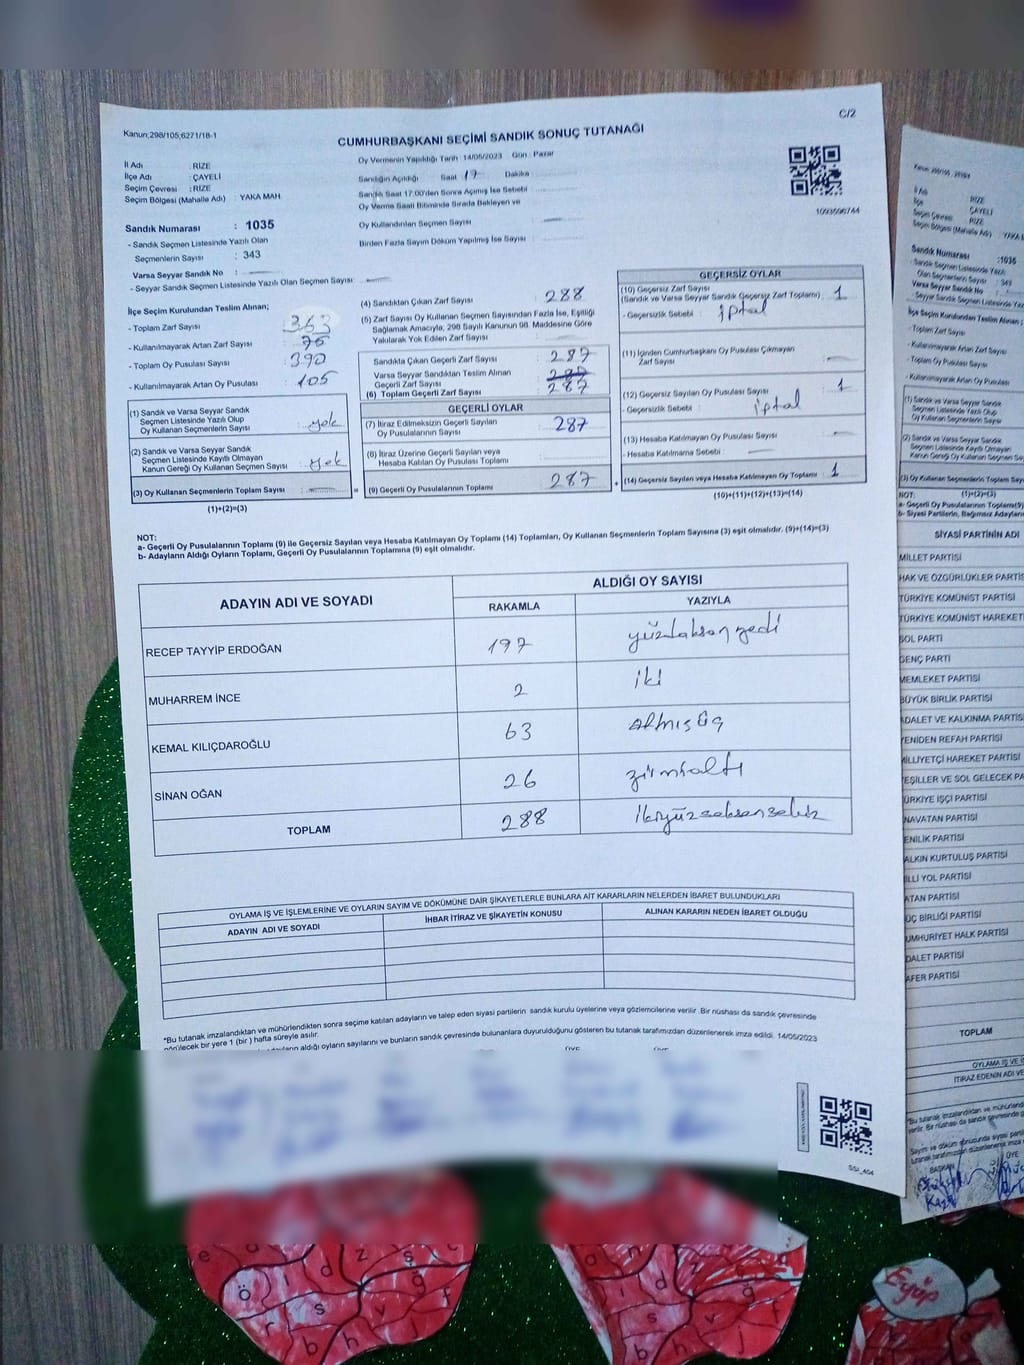 C/2
Kanun;298/105;6271/18-1
CUMHURBAŞKANI SEÇİMİ SANDIK SONUÇ TUTANAĞI
İl Adı : RİZE
İlçe Adı : ÇAYELİ
Seçim Çevresi : RİZE
Seçim Bölgesi (Mahalle Adı) : YAKA MAH
Oy Vermenin Yapıldığı Tarih : 14/05/2023 Gün : Pazar
Sandığın Açıldığı Saat 17 Dakika
Sandık Saat 17:00'den Sonra Açılmış İse Sebebi :
Oy Verme Saati Bitiminde Sırada Bekleyen ve
Oy Kullandırılan Seçmen Sayısı :
Birden Fazla Sayım Döküm Yapılmış İse Sayısı :
1093596744
Sandık Numarası : 1035
- Sandık Seçmen Listesinde Yazılı Olan
Seçmenlerin Sayısı : 343
Varsa Seyyar Sandık No :
- Seyyar Sandık Seçmen Listesinde Yazılı Olan Seçmen Sayısı :
İlçe Seçim Kurulundan Teslim Alınan;
- Toplam Zarf Sayısı : 363
- Kullanılmayarak Artan Zarf Sayısı : 75
- Toplam Oy Pusulası Sayısı : 390
- Kullanılmayarak Artan Oy Pusulası : 105
(1) Sandık ve Varsa Seyyar Sandık
Seçmen Listesinde Yazılı Olup
Oy Kullanan Seçmenlerin Sayısı : yok
(2) Sandık ve Varsa Seyyar Sandık
Seçmen Listesinde Kayıtlı Olmayan
Kanun Gereği Oy Kullanan Seçmen Sayısı : yok
(3) Oy Kullanan Seçmenlerin Toplam Sayısı :
(1)+(2)=(3)
(4) Sandıktan Çıkan Zarf Sayısı : 288
(5) Zarf Sayısı Oy Kullanan Seçmen Sayısından Fazla İse, Eşitliği
Sağlamak Amacıyla, 298 Sayılı Kanunun 98. Maddesine Göre
Yakılarak Yok Edilen Zarf Sayısı :
Sandıkta Çıkan Geçerli Zarf Sayısı : 287
Varsa Seyyar Sandıktan Teslim Alınan
Geçerli Zarf Sayısı
(6) Toplam Geçerli Zarf Sayısı : 287
GEÇERLİ OYLAR
(7) İtiraz Edilmeksizin Geçerli Sayılan
Oy Pusulalarının Sayısı : 287
(8) İtiraz Üzerine Geçerli Sayılan veya
Hesaba Katılan Oy Pusulası Toplamı :
(9) Geçerli Oy Pusulalarının Toplamı : 287
GEÇERSİZ OYLAR
(10) Geçersiz Zarf Sayısı
(Sandık ve Varsa Seyyar Sandık Geçersiz Zarf Toplamı) : 1
- Geçersizlik Sebebi : iptal
(11) İçinden Cumhurbaşkanı Oy Pusulası Çıkmayan
Zarf Sayısı :
(12) Geçersiz Sayılan Oy Pusulası Sayısı : 1
- Geçersizlik Sebebi : iptal
(13) Hesaba Katılmayan Oy Pusulası Sayısı :
- Hesaba Katılmama Sebebi :
(14) Geçersiz Sayılan veya Hesaba Katılmayan Oy Toplamı : 1
(10)+(11)+(12)+(13)=(14)
NOT:
a- Geçerli Oy Pusulalarının Toplamı (9) ile Geçersiz Sayılan veya Hesaba Katılmayan Oy Toplamı (14) Toplamları, Oy Kullanan Seçmenlerin Toplam Sayısına (3) eşit olmalıdır. (9)+(14)=(3)
b- Adayların Aldığı Oyların Toplamı, Geçerli Oy Pusulalarının Toplamına (9) eşit olmalıdır.
ADAYIN ADI VE SOYADI ALDIĞI OY SAYISI
RAKAMLA YAZIYLA
RECEP TAYYİP ERDOĞAN 197
MUHARREM İNCE 2 iki
KEMAL KILIÇDAROĞLU 63 altmış üç
SİNAN OĞAN 26 yirmialtı
TOPLAM 288 ikiyüzseksensekiz
OYLAMA İŞ VE İŞLEMLERİNE VE OYLARIN SAYIM VE DÖKÜMÜNE DAİR ŞİKAYETLERLE BUNLARA AİT KARARLARIN NELERDEN İBARET BULUNDUKLARI
ADAYIN ADI VE SOYADI İHBAR İTİRAZ VE ŞİKAYETİN KONUSU ALINAN KARARIN NEDEN İBARET OLDUĞU
*Bu tutanak imzalandıktan ve mühürlendikten sonra seçime katılan adayların ve talep eden siyasi partilerin sandık kurulu üyelerine veya gözlemcilerine verilir. Bir nüshası da sandık çevresinde
görülecek bir yere 1 (bir) hafta süreyle asılır.
adayların aldığı oyların sayılarını ve bunların sandık çevresinde bulunanlara duyurulduğunu gösteren bu tutanak tarafımızdan düzenlenerek imza edildi. 14/05/2023
SSI_404
RİZE
ÇAYELİ
RİZE
Sandık Numarası :1035
İlçe Seçim Kurulundan Teslim Alınan
- Toplam Zarf Sayısı
- Kullanılmayarak Artan Zarf Sayısı
- Toplam Oy Pusulası Sayısı
- Kullanılmayarak Artan Oy Pusulası
(1)+(2)=(3)
NOT:
SİYASİ PARTİNİN ADI
MİLLET PARTİSİ
HAK VE ÖZGÜRLÜKLER PARTİSİ
TÜRKİYE KOMÜNİST PARTİSİ
TÜRKİYE KOMÜNİST HAREKET
SOL PARTİ
GENÇ PARTİ
MEMLEKET PARTİSİ
BÜYÜK BİRLİK PARTİSİ
ADALET VE KALKINMA PARTİSİ
YENİDEN REFAH PARTİSİ
MİLLİYETÇİ HAREKET PARTİSİ
YEŞİLLER VE SOL GELECEK PA
TÜRKİYE İŞÇİ PARTİSİ
ANAVATAN PARTİSİ
YENİLİK PARTİSİ
HALKIN KURTULUŞ PARTİSİ
MİLLİ YOL PARTİSİ
VATAN PARTİSİ
GÜÇ BİRLİĞİ PARTİSİ
CUMHURİYET HALK PARTİSİ
ADALET PARTİSİ
ZAFER PARTİSİ
TOPLAM
BAŞKAN ÜYE
Eyüp